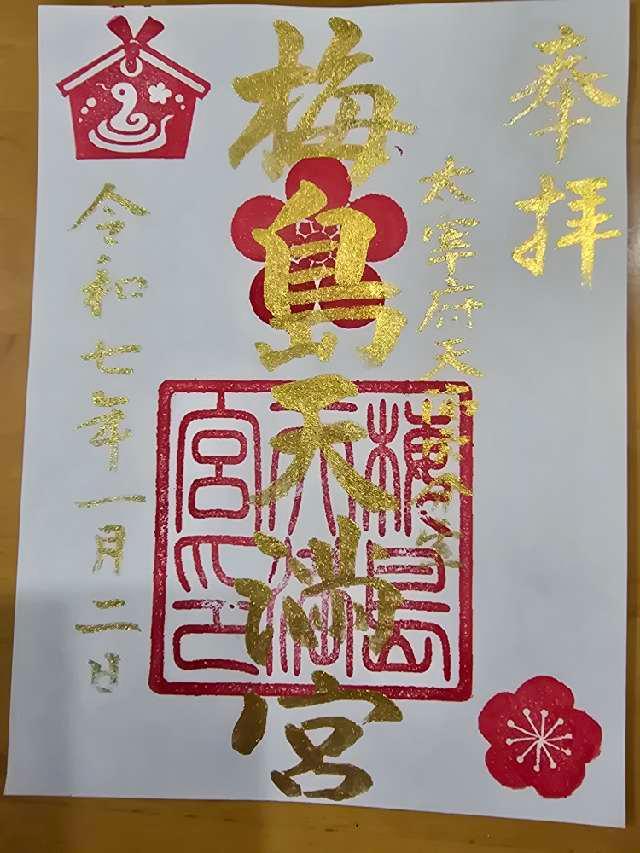 奉拝
太宰府天満宮
梅島天満宮
令和七年一月二日
梅島
天満
宮印